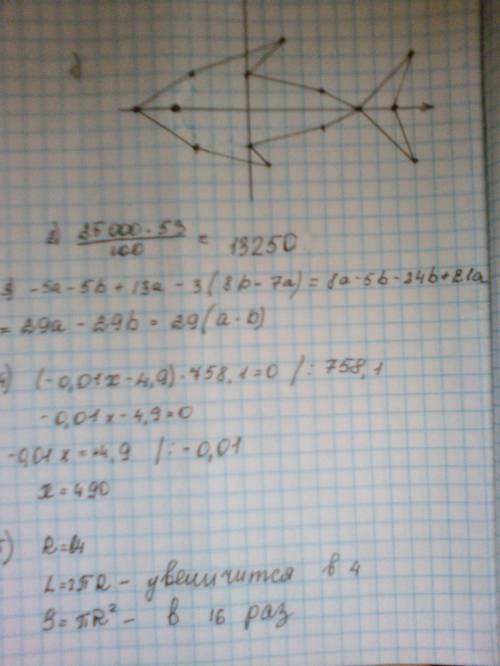 2) 25 000 · 53 / 100 = 13250
3) -5a - 5b + 13a - 3(8b - 7a) = 8a - 5b - 24b + 21a
= 29a - 29b = 29(a - b)
4) (-0,01x - 4,9) · 758,1 = 0 /: 758,1
-0,01x - 4,9 = 0
-0,01x = 4,9 /: -0,01
x = 490
5) R=
L = 2πR - увеличится в 4
S = πR² - в 16 раз